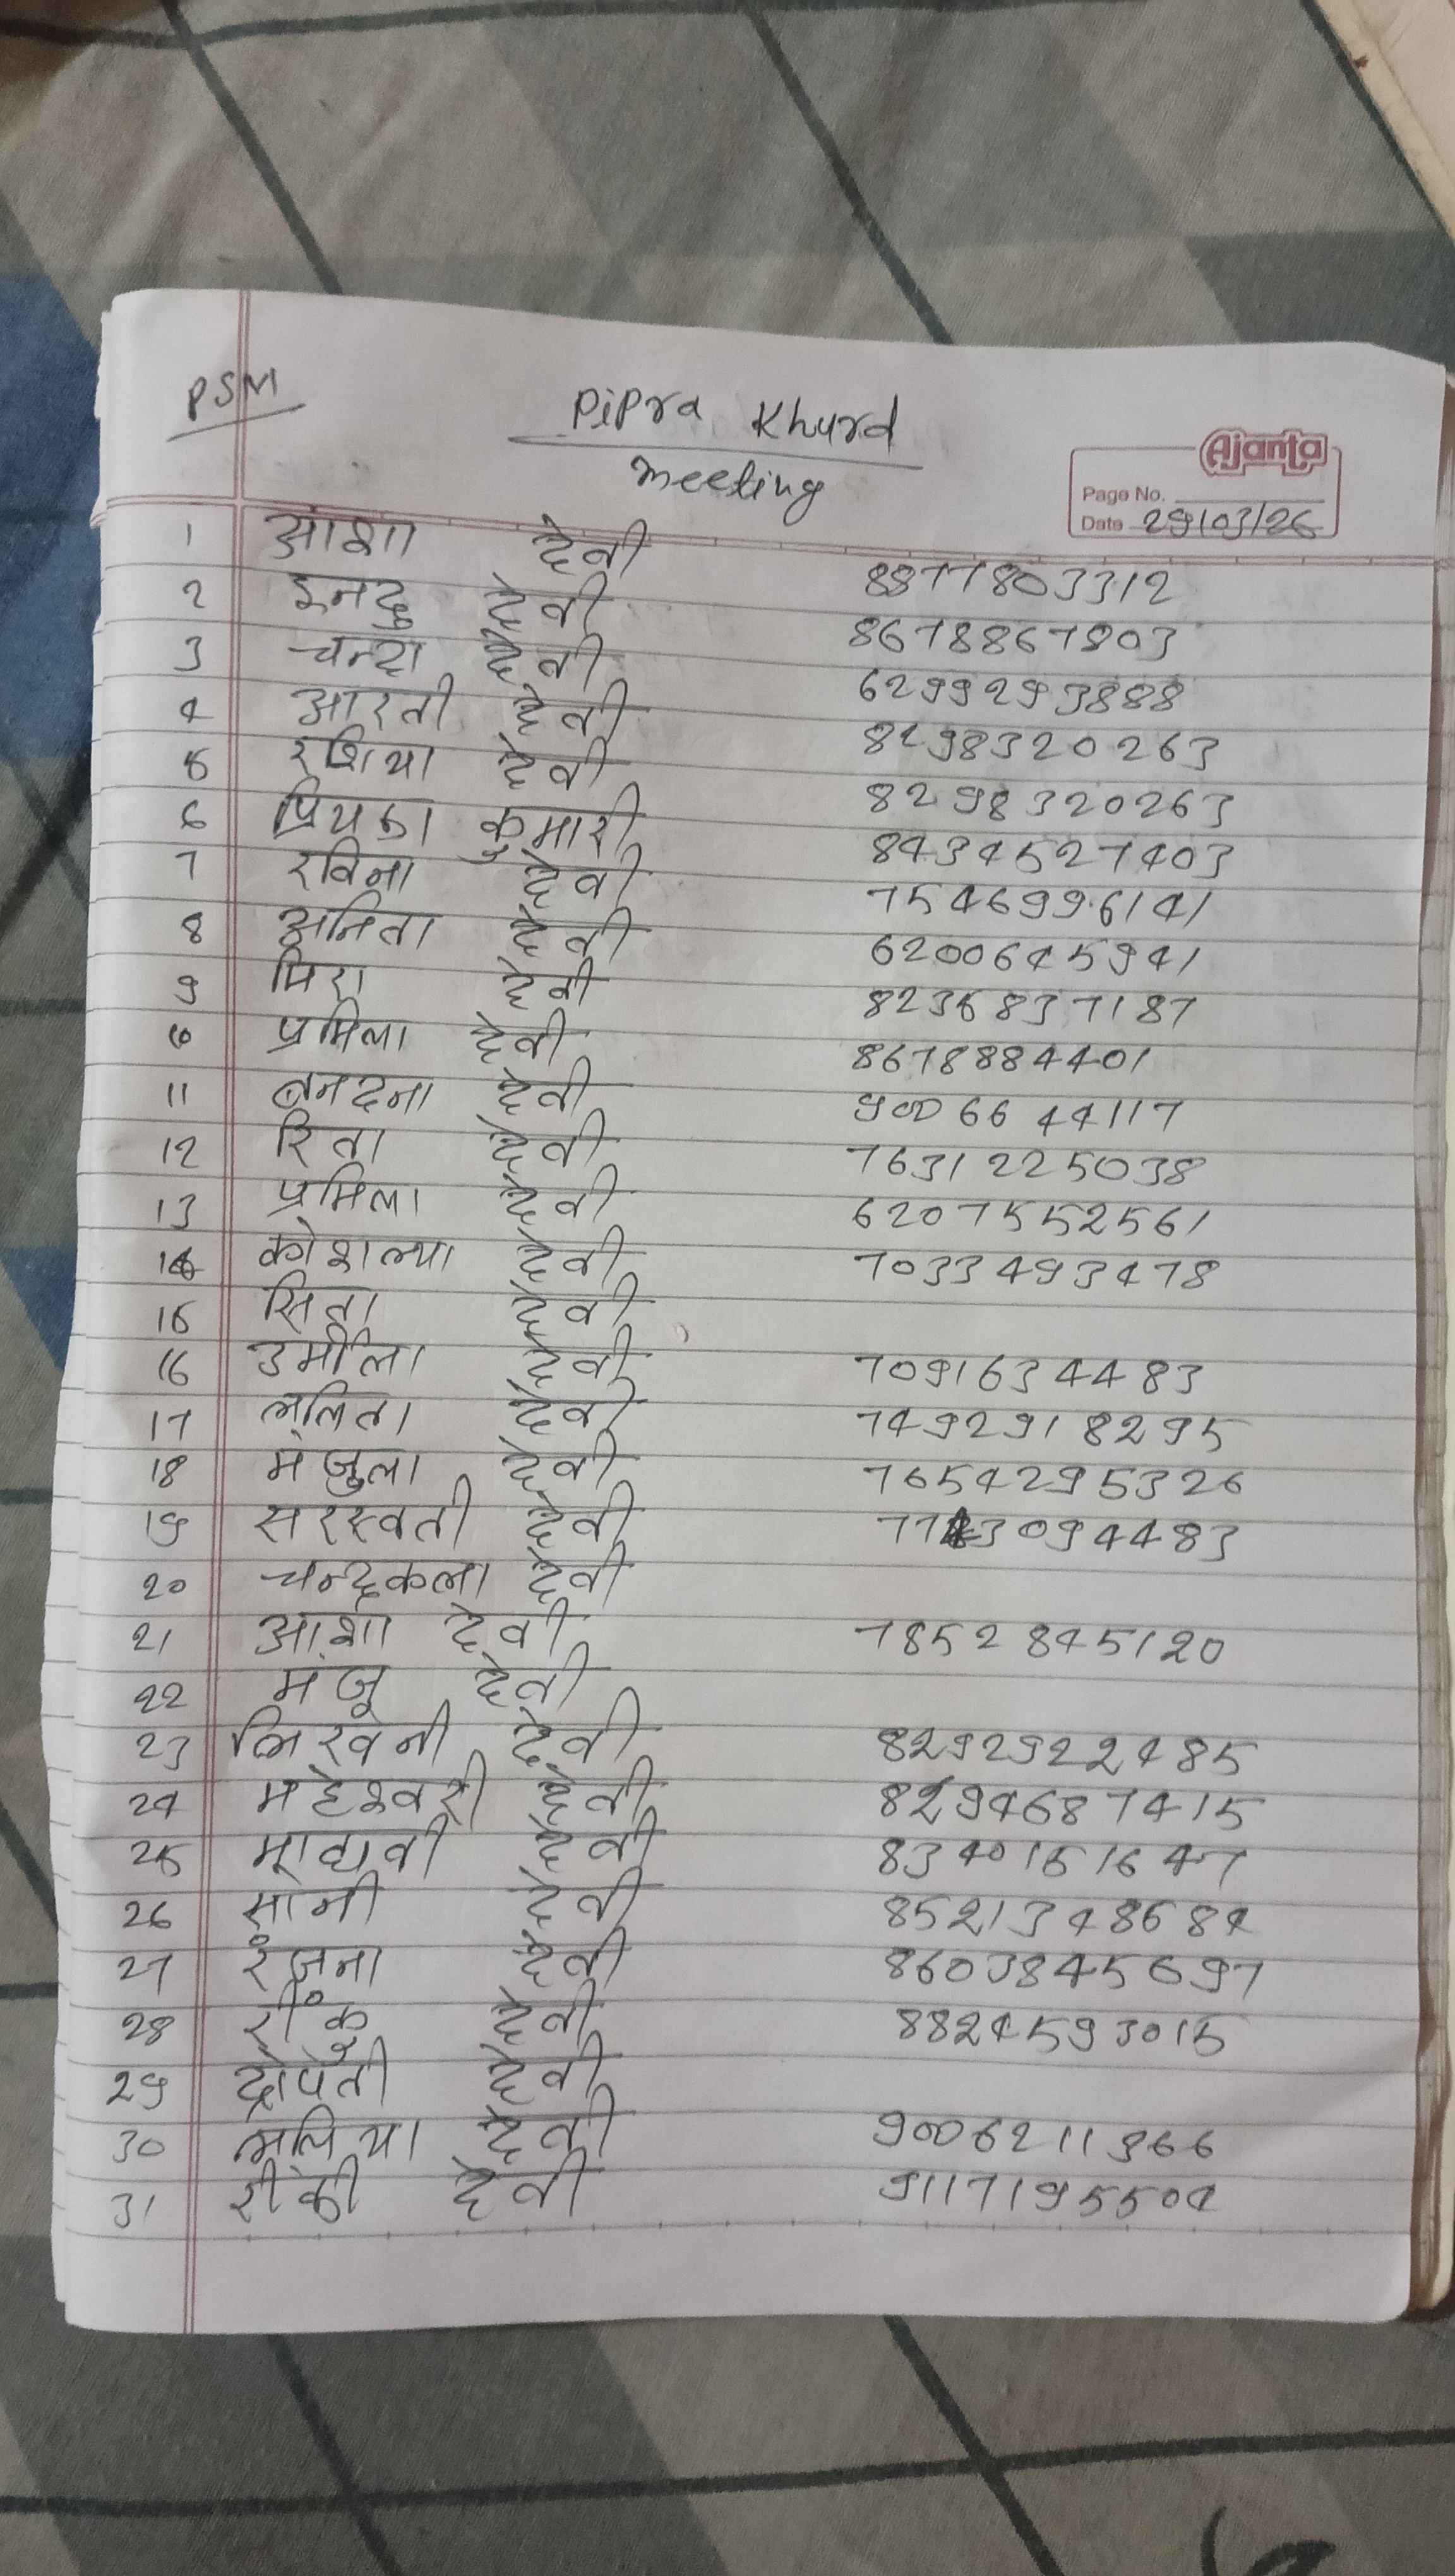 PSM
Pipra Khurd
meeting
Ajanta
Page No.
Date 29/03/26
1 आशा देवी 8877803312
2 इनदु देवी 8678867903
3 चन्दा देवी 6299293888
4 आरती देवी 8298320263
5 रशिया देवी 8298320263
6 प्रियका कुमारी 8434527403
7 रविना देवी 7546996141
8 अनिता देवी 6200645941
9 मिरा देवी 8235837187
10 प्रमिला देवी 8678884401
11 बनदना देवी 9006644117
12 रिता देवी 7631225038
13 प्रमिला देवी 6207552561
14 कोशल्या देवी 7033493478
15 सिता देवी
16 उर्मीला देवी 7091634483
17 ललिता देवी 7492918295
18 मंजुला देवी 7654295326
19 सरस्वती देवी 7743094483
20 चन्द्रकला देवी
21 आशा देवी 7852845120
22 मंजू देवी
23 लिखनी देवी 8292922485
24 महेश्वरी देवी 8294687415
25 माधवी देवी 8340151647
26 सोनी देवी 8521348684
27 रंजना देवी 8603845697
28 रींकु देवी 8824593015
29 द्रोपती देवी
30 देवी 9006211366
31 रींकी देवी 9117195504